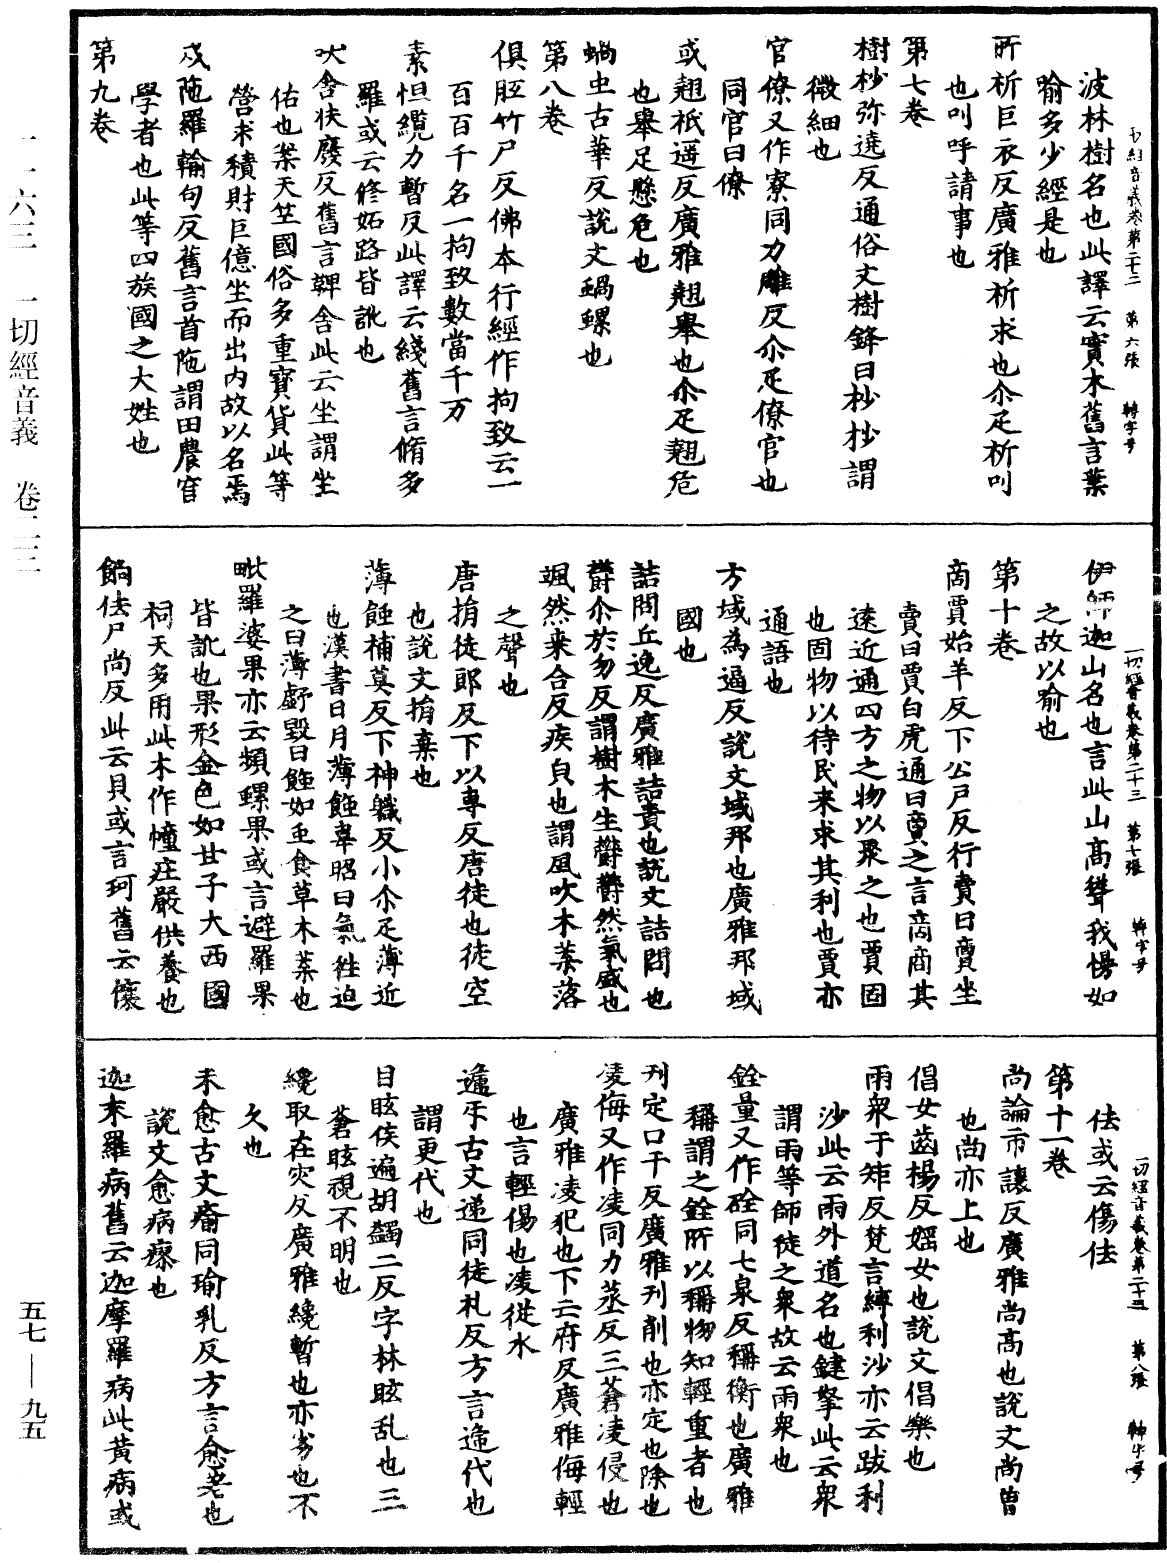 一切經音義卷第二十三　第六張　轉字号
波林樹名也此譯云實木舊言葉
喻多少經是也
所祈巨衣反廣雅祈求也尒疋祈叫
也叫呼請事也
第七卷
樹杪弥遶反通俗文樹鋒曰杪杪謂
微細也
官僚又作寮同力雕反尒疋僚官也
同官曰僚
或翹祇遥反廣雅翹舉也尒疋翹危
也舉足懸危也
蝸虫古華反說文蝸螺也
第八卷
俱胝竹尸反佛本行經作拘致云一
百百千名一拘致數當千万
素怛纜力暫反此譯云綫舊言脩多
羅或云修妬路皆訛也
吠舍扶廢反舊言鞞舍此云坐謂坐
佑也案天竺國俗多重寶貨此等
營求積財巨億坐而出内故以名焉
戍陁羅輸句反舊言首陁謂田農官
學者也此等四族國之大姓也
第九卷
一切經音義卷第二十三　第七張　轉字号
伊師迦山名也言此山高聳我慢如
之故以喻也
第十卷
商賈始羊反下公戸反行賣曰賣坐
賣曰賈白虎通曰賣之言商商其
遠近通四方之物以聚之也賈固
也固物以待民来求其利也賈亦
通語也
方域為逼反說文域邦也廣雅邦域
國也
詰問丘逸反廣雅詰責也說文詰問也
欝尒於勿反謂樹木生欝欝然氣盛也
颯然来合反疾皃也謂風吹木葉落
之聲也
唐捐徒郎反下以專反唐徒也徒空
也說文捐棄也
薄蝕補莫反下神軄反小尒疋薄近
也漢書日月薄蝕韋昭曰氣往迫
之曰薄虧毀曰蝕如虫食草木葉也
毗羅婆果亦云頻螺果或言避羅果
皆訛也果形金色如甘子大西國
祠天多用此木作幢㽵嚴供養也
餉佉尸尚反此云貝或言珂舊云儴
一切經音義卷第二十三　第八張　轉字号
佉或云傷佉
第十一卷
尚論市讓反廣雅尚高也說文尚曽
也尚亦上也
倡女齒楊反婬女也說文倡樂也
雨衆于矩反梵言縛利沙亦云跋利
沙此云雨外道名也鍵拏此云衆
謂雨等師徒之衆故云雨衆也
銓量又作硂同七泉反稱衡也廣雅
稱謂之銓所以稱物知輕重者也
刊定口干反廣雅刊削也亦定也除也
凌侮又作淩同力蒸反三蒼凌侵也
廣雅凌犯也下亡府反廣雅侮輕
也言輕傷也凌從水
遞乎古文递同徒札反方言遞代也
謂更代也
目眩侯遍胡蠲二反字林眩乱也三
蒼眩視不明也
纔取在灾反廣雅纔暫也亦劣也不
久也
未愈古文瘉同瑜乳反方言愈差也
說文愈病瘳也
迦末羅病舊云迦摩羅病此黃病或
二一六三　一切經音義　卷二三
五七—九五